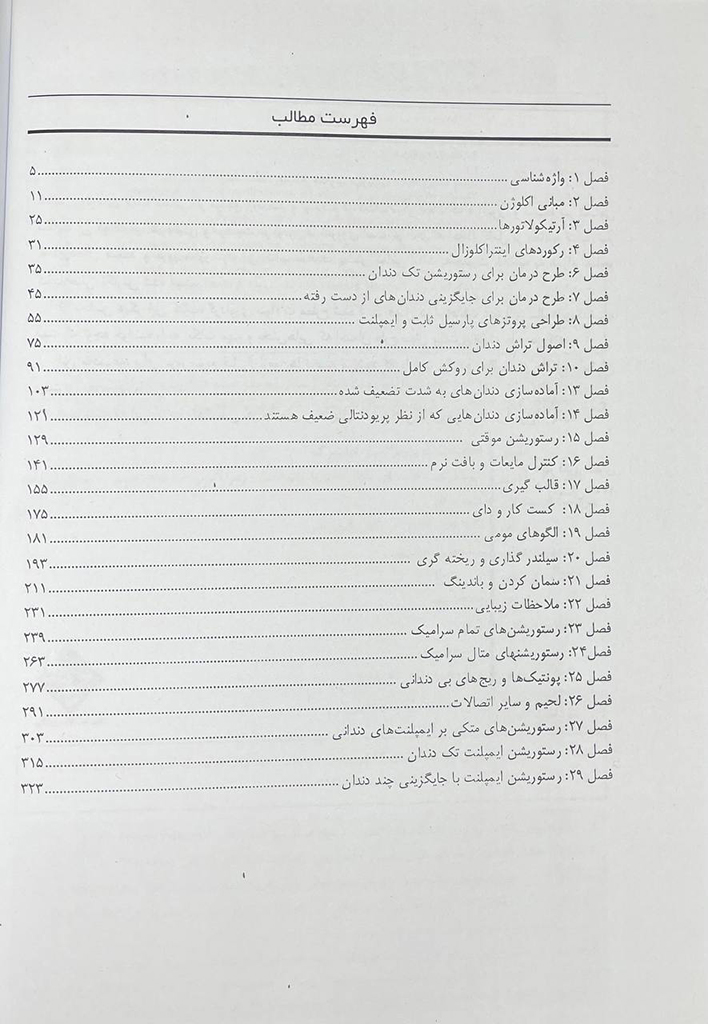 فهرست مطالب
فصل ۱: واژه‌شناسی ........ ۵
فصل ۲: مبانی اکلوژن ........ ۱۱
فصل ۳: آرتیکولاتورها ........ ۲۵
فصل ۴: رکوردهای اینتراکلوزال ........ ۳۱
فصل ۶: طرح درمان برای رستوریشن تک دندان ........ ۳۵
فصل ۷: طرح درمان برای جایگزینی دندان‌های از دست رفته ........ ۴۵
فصل ۸: طراحی پروتزهای پارسیل ثابت و ایمپلنت ........ ۵۵
فصل ۹: اصول تراش دندان ........ ۷۵
فصل ۱۰: تراش دندان برای روکش کامل ........ ۹۱
فصل ۱۳: آماده‌سازی دندان‌های به شدت تضعیف شده ........ ۱۰۳
فصل ۱۴: آماده‌سازی دندان‌هایی که از نظر پریودنتالی ضعیف هستند ........ ۱۲۱
فصل ۱۵: رستوریشن موقتی ........ ۱۲۹
فصل ۱۶: کنترل مایعات و بافت نرم ........ ۱۴۱
فصل ۱۷: قالب گیری ........ ۱۵۵
فصل ۱۸: کست کار و دای ........ ۱۷۵
فصل ۱۹: الگوهای مومی ........ ۱۸۱
فصل ۲۰: سیلندر گذاری و ریخته گری ........ ۱۹۳
فصل ۲۱: سمان کردن و باندینگ ........ ۲۱۱
فصل ۲۲: ملاحظات زیبایی ........ ۲۳۱
فصل ۲۳: رستوریشن‌های تمام سرامیک ........ ۲۳۹
فصل ۲۴: رستوریشنهای متال سرامیک ........ ۲۶۳
فصل ۲۵: پونتیک‌ها و ریج‌های بی دندانی ........ ۲۷۷
فصل ۲۶: لحیم و سایر اتصالات ........ ۲۹۱
فصل ۲۷: رستوریشن‌های متکی بر ایمپلنت‌های دندانی ........ ۳۰۳
فصل ۲۸: رستوریشن ایمپلنت تک دندان ........ ۳۱۵
فصل ۲۹: رستوریشن ایمپلنت با جایگزینی چند دندان ........ ۳۲۳